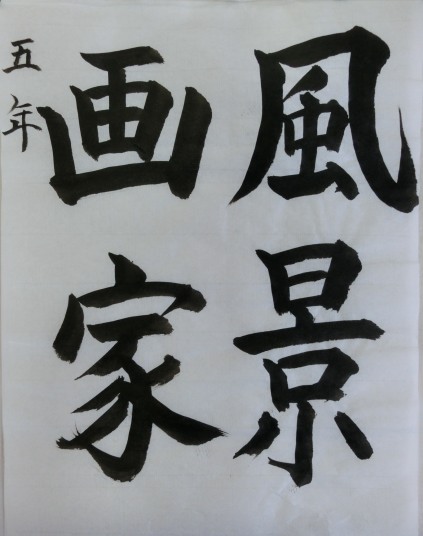 風景
画家
五年